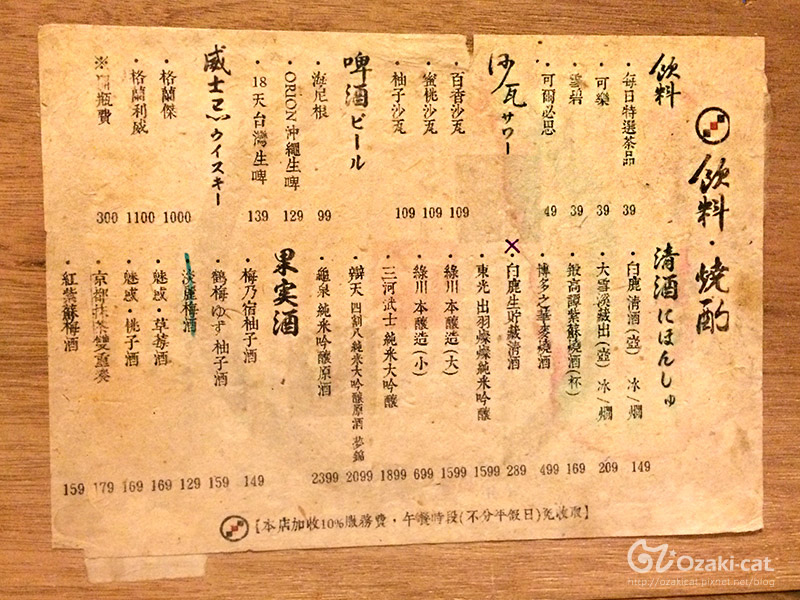 飲料・燒酌
飲料
・每日特選茶品 39
・可樂 39
・雪碧 39
・可爾必思 49
沙瓦サワー
・百香沙瓦 109
・蜜桃沙瓦 109
・柚子沙瓦 109
啤酒ビール
・海尼根 99
・ORION沖繩生啤 129
・18天台灣生啤 139
威士忌ウイスキー
・格蘭傑 1000
・格蘭利威 1100
※開瓶費 300
清酒にほんしゅ
・白鹿清酒(壺) 冰/燗 149
・大雪溪蔵出(壺) 冰/燗 209
・最高譚紫蘇燒酒(杯) 169
・博多之華麥燒酒 499
・白鹿生貯蔵清酒 289
・東光 出羽燦燦純米吟釀 1599
・綠川 本釀造(大) 1599
・綠川 本釀造(小) 699
・三河武士 純米大吟釀 1899
・辯天 四割八純米大吟釀原酒 夢錦 2099
・龜泉 純米吟釀原酒 2399
果実酒
・梅乃宿柚子酒 149
・鶴梅ゆず柚子酒 159
・淡麗梅酒 129
・魅惑・草莓酒 169
・魅惑・桃子酒 169
・京都抹茶雙重奏 179
・紅紫蘇梅酒 159
【本店加收10%服務費・午餐時段(不分平假日)免收取】
Ozaki-cat
http://ozakicat.pixnet.net/blog